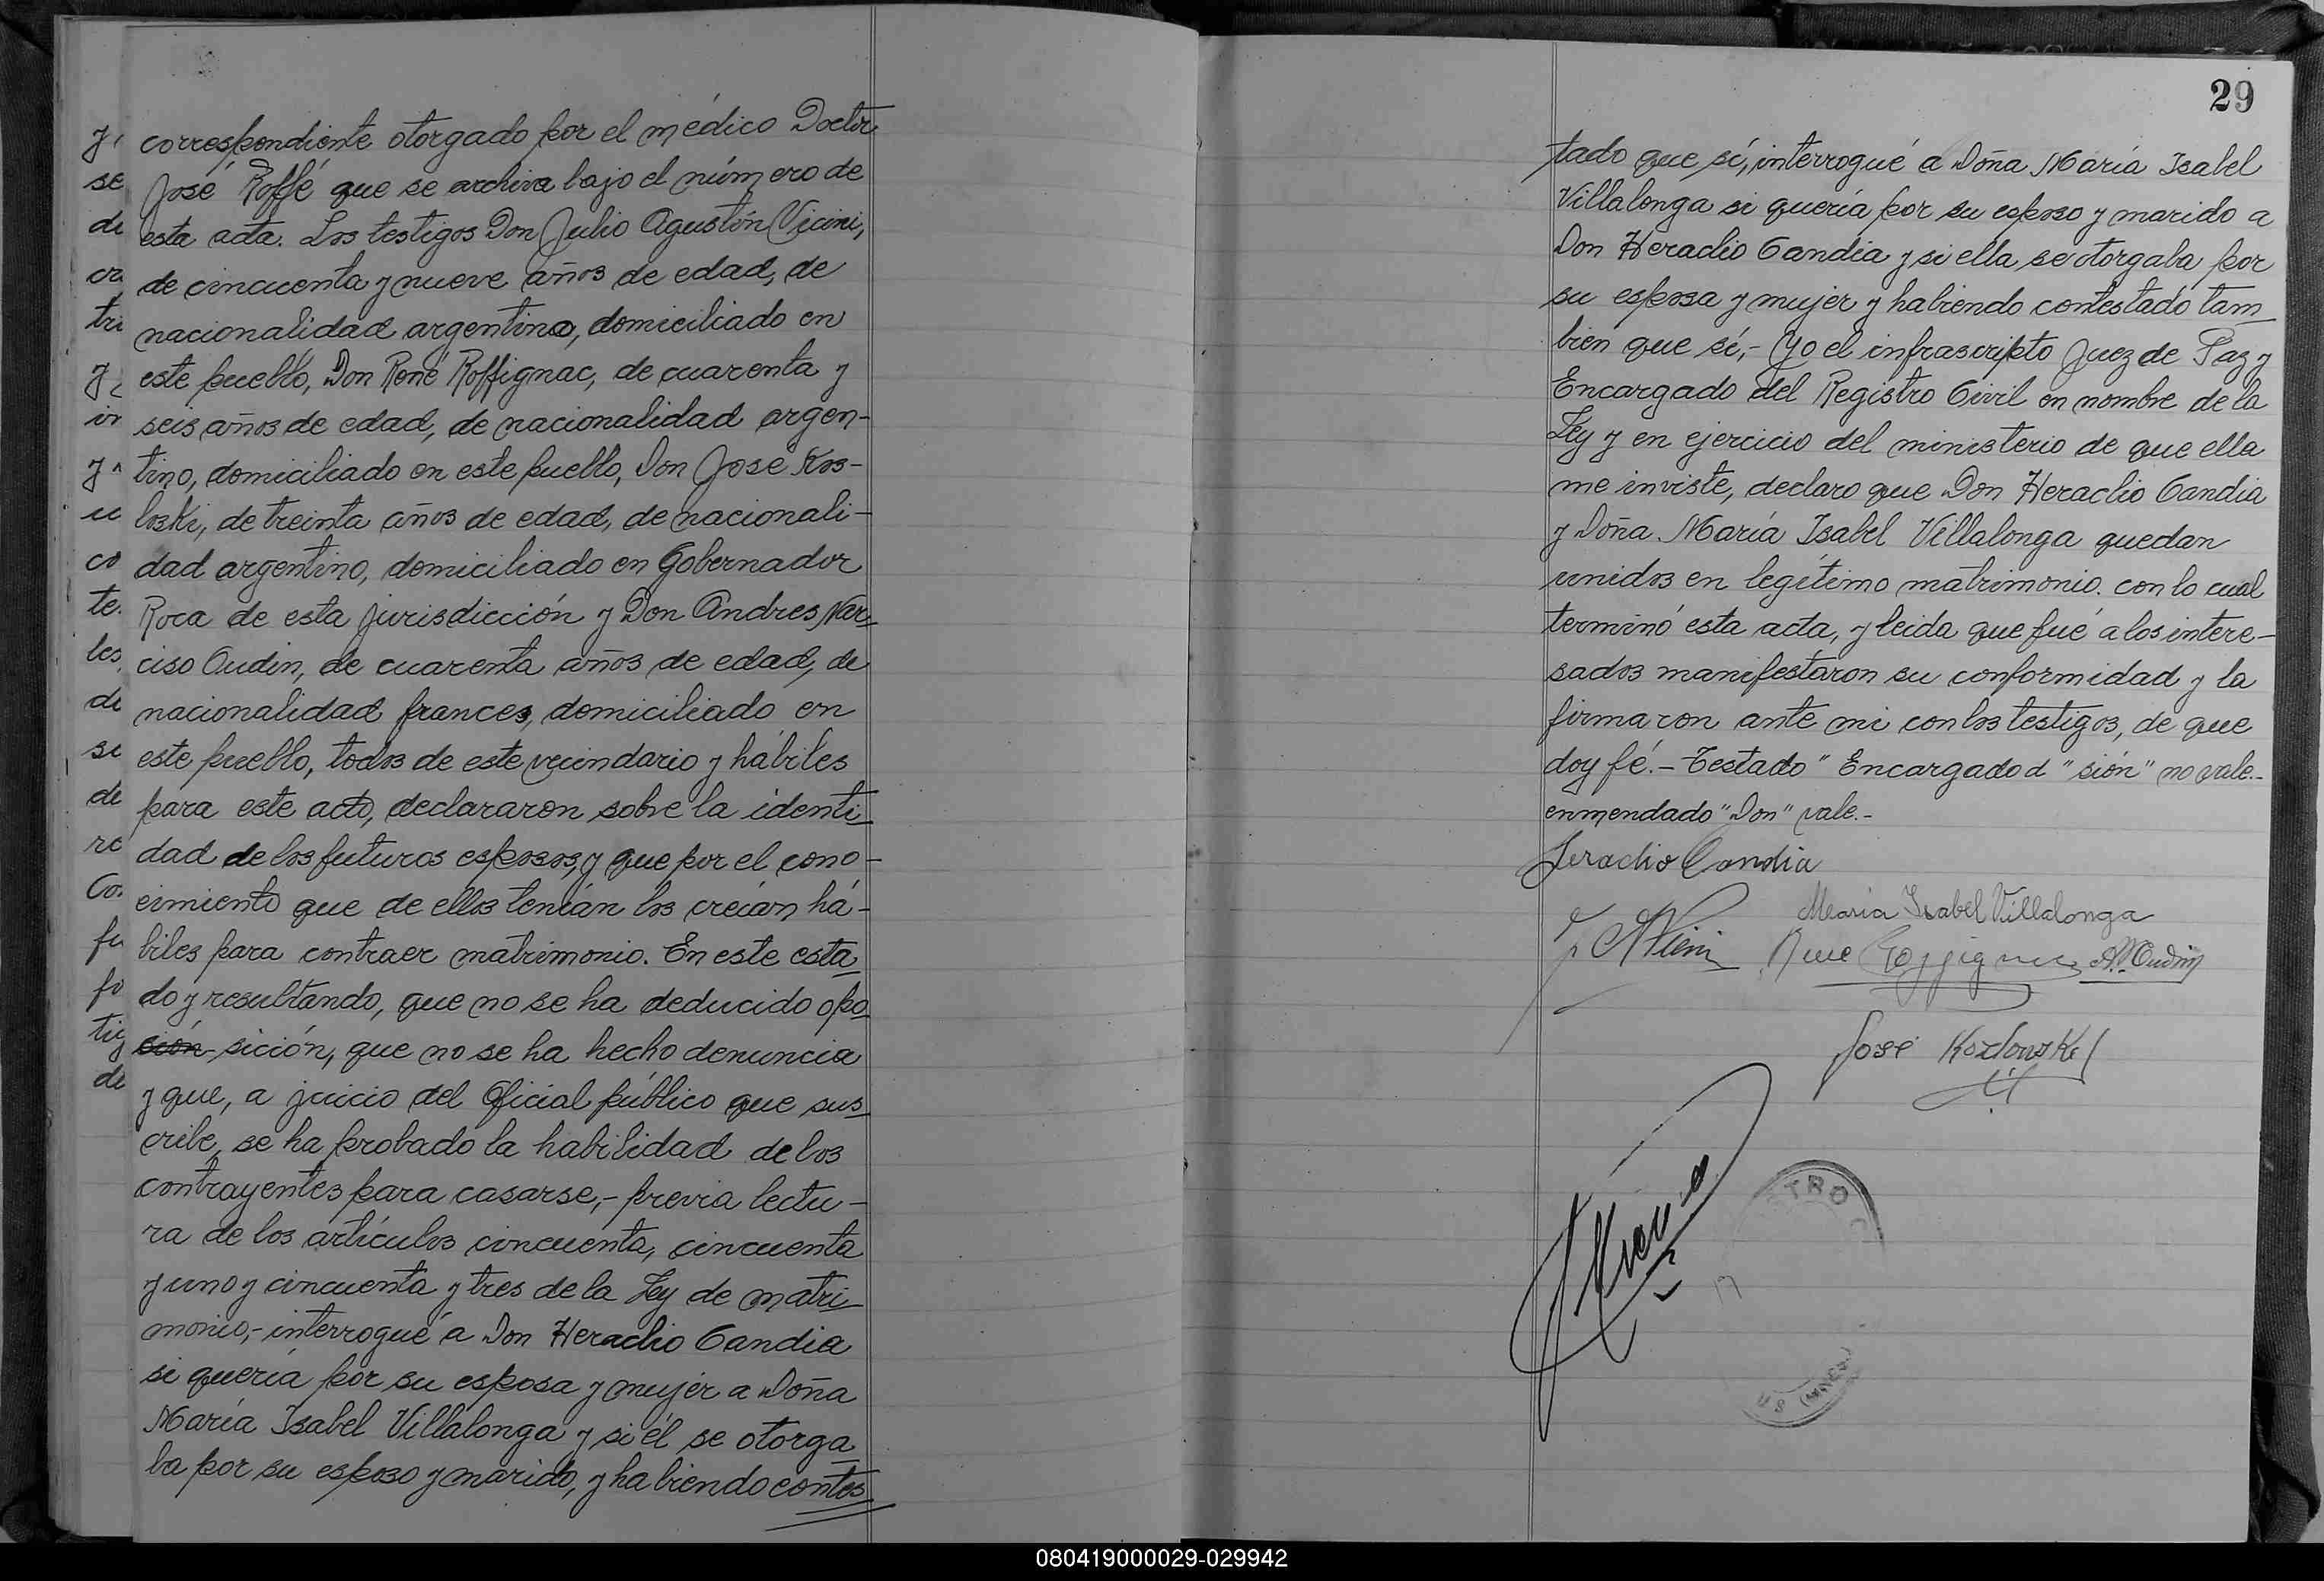 correspondiente otorgado por el médico Doctor
José Roffé que se archiva bajo el número de
esta acta. Los testigos Don Julio Agustín Vicini,
de cincuenta y nueve años de edad, de
nacionalidad argentino, domiciliado en
este pueblo, Don René Roffignac, de cuarenta y
seis años de edad, de nacionalidad argen-
tino, domiciliado en este pueblo, Don José Kos-
loski, de treinta años de edad, de nacionali-
dad argentino, domiciliado en Gobernador
Roca de esta jurisdicción y Don Andres Nar-
ciso Oudin, de cuarenta años de edad, de
nacionalidad frances, domiciliado en
este pueblo, todos de este vecindario y hábiles
para este acto, declararon sobre la identi-
dad de los futuros esposos, y que por el cono-
cimiento que de ellos tenían los creían há-
biles para contraer matrimonio. En este esta-
do y resultando, que no se ha deducido opo-
sión sición, que no se ha hecho denuncia
y que, a juicio del Oficial público que sus-
cribe, se ha probado la habilidad de los
contrayentes para casarse,- previa lectu-
ra de los artículos cincuenta, cincuenta
y uno y cincuenta y tres de la Ley de matri-
monio,- interrogué a Don Heraclio Candia
si quería por su esposa y mujer a Doña
María Isabel Villalonga y si él se otorga-
ba por su esposo y marido, y habiendo contes-
29
tado que sí, interrogué a Doña María Isabel
Villalonga si quería por su esposo y marido a
Don Heraclio Candia y si ella se otorgaba por
su esposa y mujer y habiendo contestado tam-
bién que sí,- Yo el infrascripto Juez de Paz y
Encargado del Registro Civil en nombre de la
Ley y en ejercicio del ministerio de que ella
me inviste, declaro que Don Heraclio Candia
y Doña María Isabel Villalonga quedan
unidos en legítimo matrimonio. con lo cual
terminó esta acta, y leida que fué a los intere-
sados manifestaron su conformidad y la
firmaron ante mi con los testigos, de que
doy fé.- Testado "Encargado d "sión" no vale.-
enmendado "Don" vale.-
Heraclio Candia
Maria Isabel Villalonga
Rene Roffignac A. N. Oudin
José Kozlowski
080419000029-029942